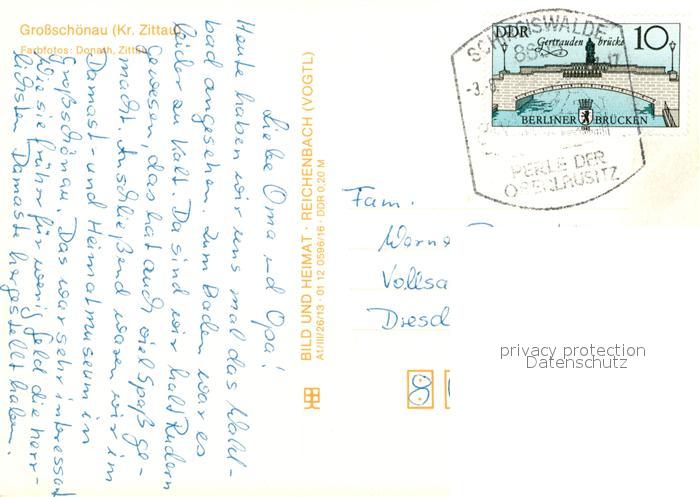 Großschönau (Kr. Zittau)
Farbfotos: Donath, Zittau
Liebe Oma und Opa!
Heute haben wir uns mal das Wald-
bad angesehen. Zum Baden war es
leider zu kalt. Da sind wir halt Rudern
gewesen, das hat auch viel Spaß ge-
macht. Anschließend waren wir im
Damast- und Heimatmuseum in
Großschönau. Das war sehr interessant
wie sie früher für wenig Geld die herr-
lichsten Damaste hergestellt haben.
BILD UND HEIMAT · REICHENBACH (VOGTL)
A1/III/26/13 · 01 12 0596/16 · DDR 0,20 M
DDR
Gertraudenbrücke
10
BERLINER BRÜCKEN
PERLE DER
OBERLAUSITZ
Fam.
Werne
Vollsa
Dresd
privacy protection
Datenschutz